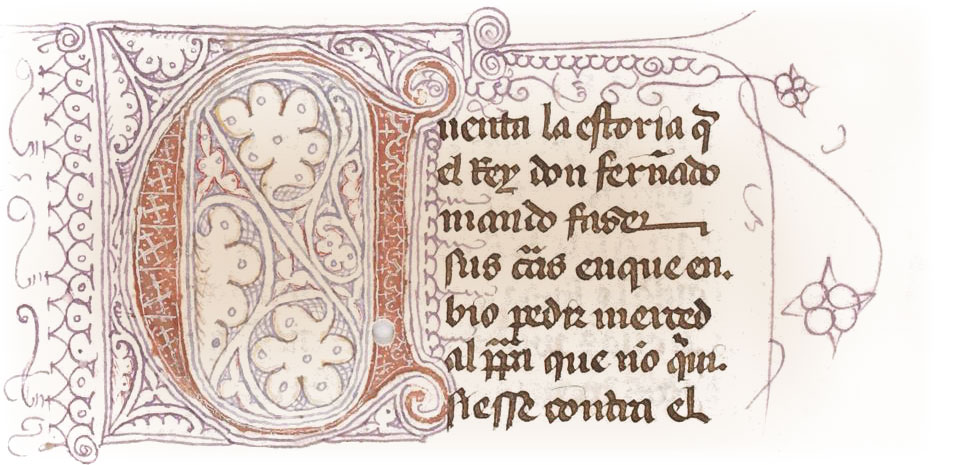 Cuenta la estoria q̄
el Rey don ferña​do
mando faser
sus c̃as en que en.
bio pedir merced
al p̃pa que no q̃ui.
siesse contra el